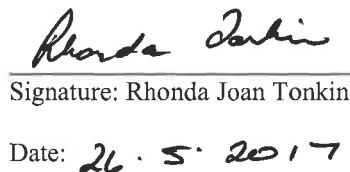 Rhonda Tonkin
Signature: Rhonda Joan Tonkin
Date: 26. 5. 2017